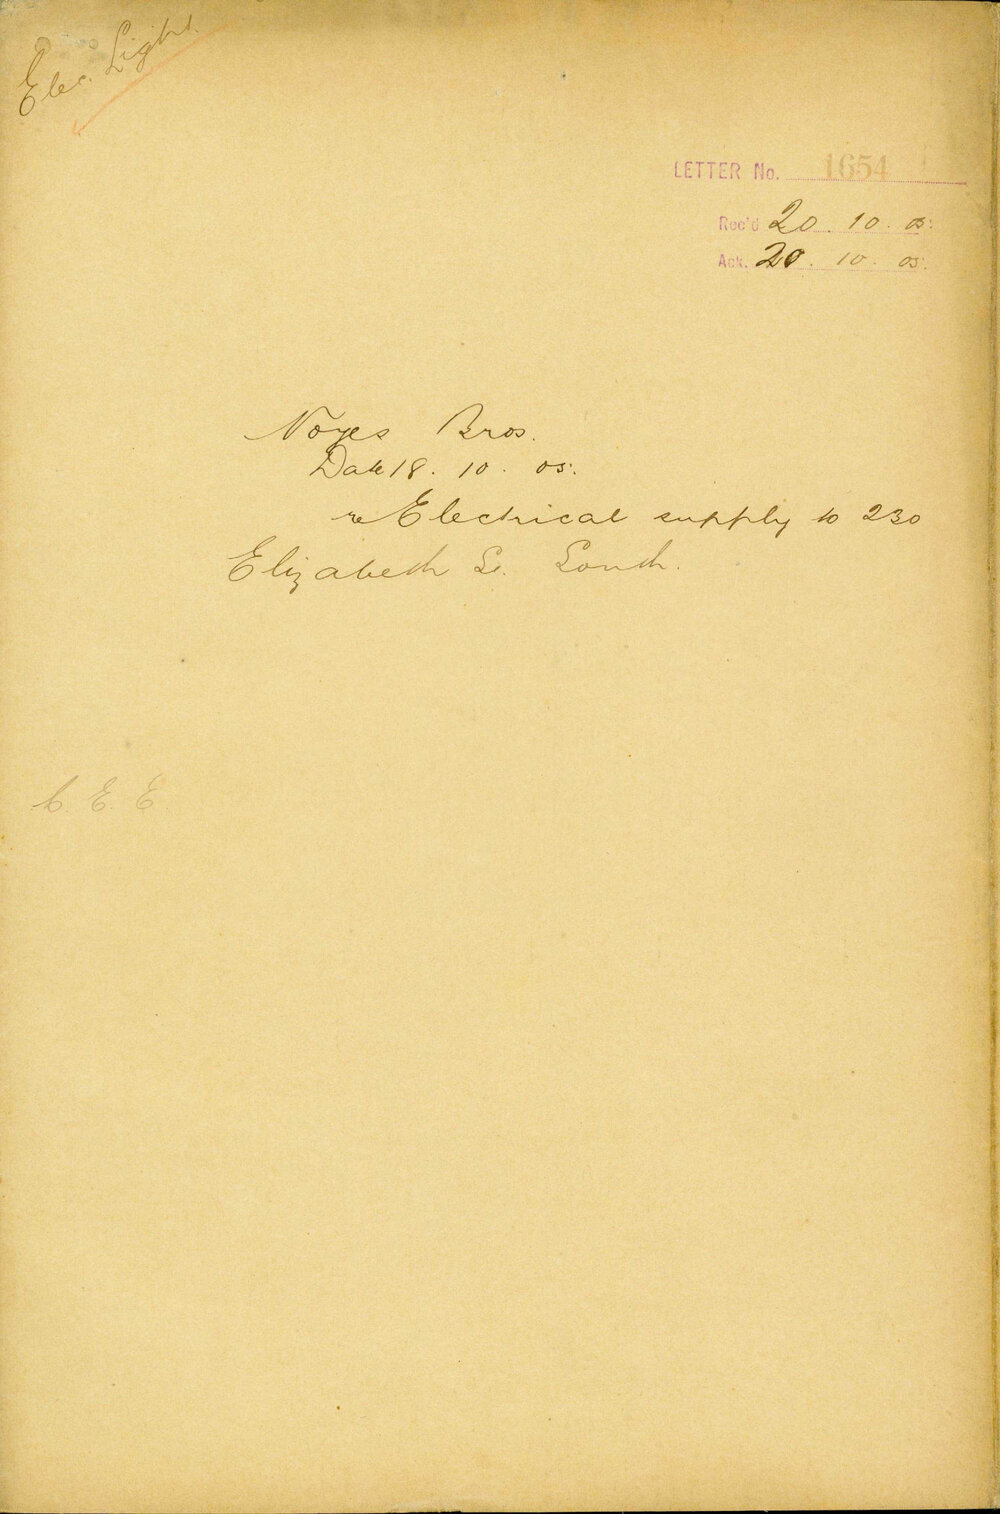 Elec. Light.
LETTER No. 1654
Rec'd 20. 10. 05.
Ack. 20. 10. 05.
Noyes Bros.
Date 18. 10. 05.
re Electrical supply to 230
Elizabeth St. South.
C. E. E